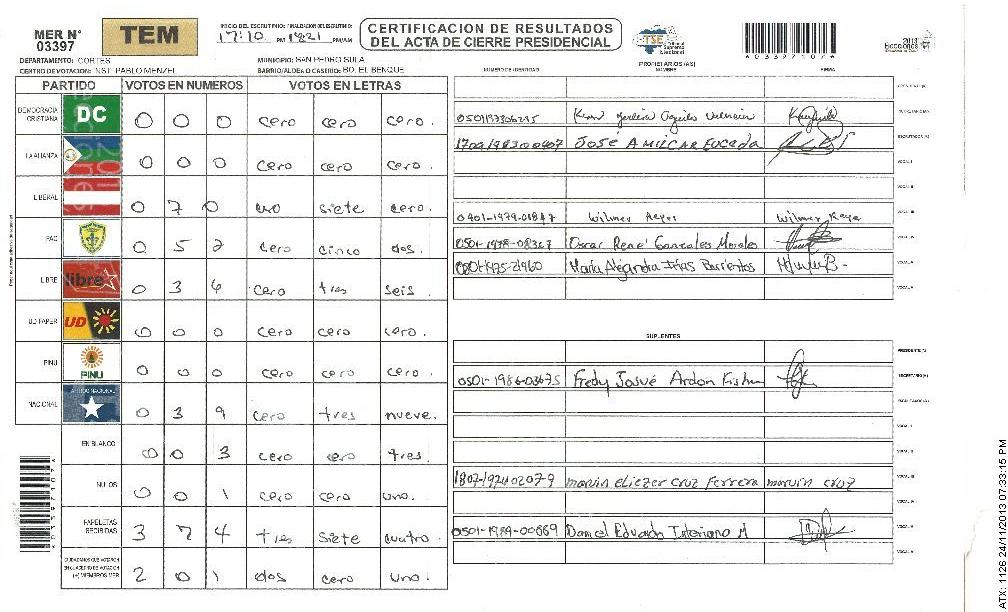 MER N° 03397
TEM
INICIO DEL ESCRUTINIO: FINALIZACION DEL ESCRUTINIO:
17:10 PM 1821 PM/AM
CERTIFICACION DE RESULTADOS
DEL ACTA DE CIERRE PRESIDENCIAL
TSE
A033971074
DEPARTAMENTO: CORTES
MUNICIPIO: SAN PEDRO SULA
CENTRO DE VOTACION: INST. PABLO MENZEL
BARRIO/ALDEA O CASERIO: BO. EL BENQUE
PARTIDO VOTOS EN NUMEROS VOTOS EN LETRAS
DEMOCRACIA CRISTIANA DC 0 0 0 cero cero cero.
LA ALIANZA 0 0 0 cero cero cero.
LIBERAL 0 7 0 siete cero.
PAC 0 5 2 cero cinco dos.
LIBRE libre 0 3 6 cero tres seis.
UD FAPER UD 0 0 0 cero cero cero.
PINU PINU 0 0 0 cero cero cero.
NACIONAL 0 3 9 cero tres nueve.
EN BLANCO 0 0 3 cero cero tres.
NULOS 0 0 1 cero cero uno.
PAPELETAS RECIBIDAS 3 7 4 tres siete cuatro.
CIUDADANOS QUE VOTARON EN CUADERNO DE VOTACION (+) MIEMBROS MER 2 0 1 dos cero uno.
PROPIETARIOS (AS)
NUMERO DE IDENTIDAD NOMBRE FIRMA
PRESIDENTE (A)
SECRETARIO (A)
JOSÉ AMILCAR EUCEDA ESCRUTADOR (A)
VOCAL I
VOCAL II
0401-1979-01847 Wilmer Reyes Wilmer Reyes VOCAL III
0501-1978-08367 Oscar René Gonzales Morales VOCAL IV
María Alejandra Irías Barrientos VOCAL V
SUPLENTES
PRESIDENTE (A)
0501-1986-03675 Fredy Josué Ardon SECRETARIO (A)
ESCRUTADOR (A)
VOCAL I
VOCAL II
marvin eliezer cruz Ferrera marvin cruz VOCAL III
VOCAL IV
0501-1989-00669 Daniel Eduardo Interiano M VOCAL V
A033971074
ATX: 1126 24/11/2013 07:33:15 PM